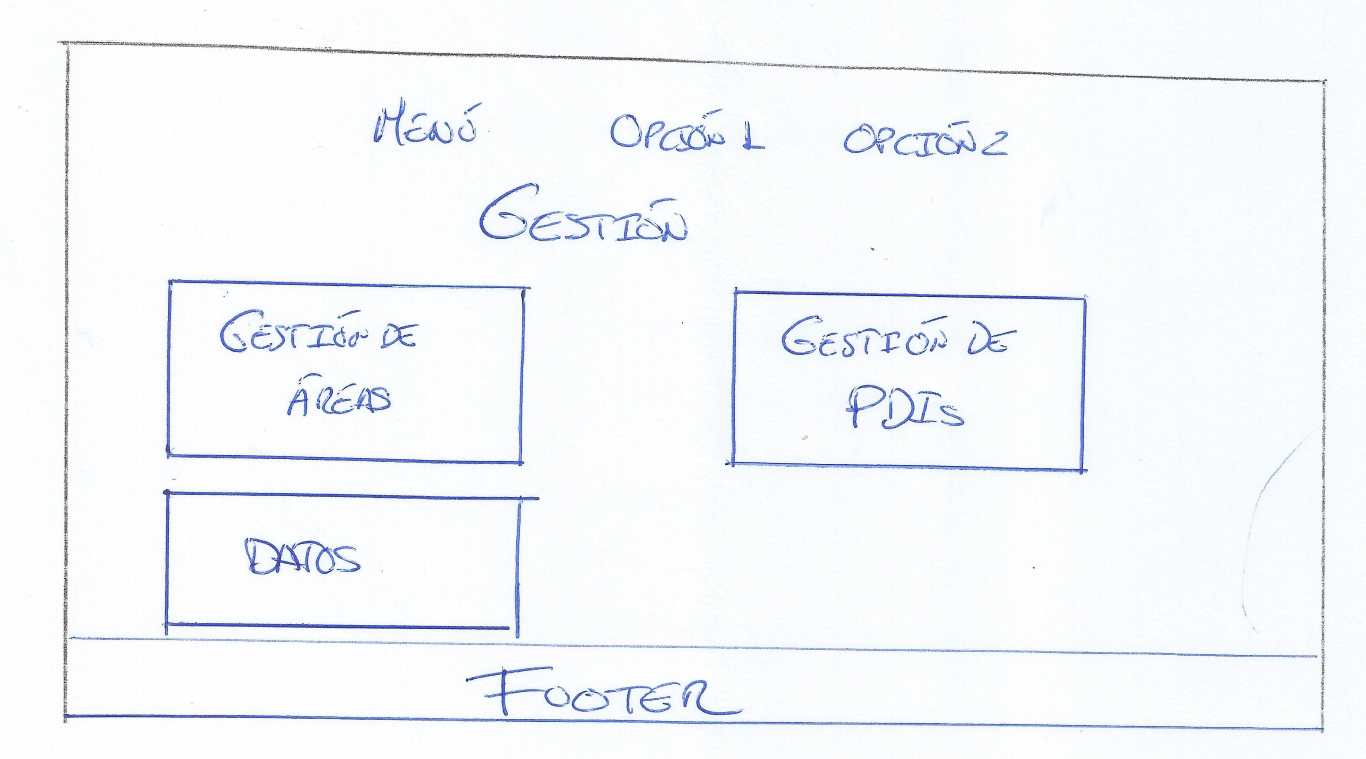 MENÚ OPCIÓN 1 OPCIÓN 2
GESTIÓN
GESTIÓN DE
ÁREAS
GESTIÓN DE
PDIs
DATOS
FOOTER